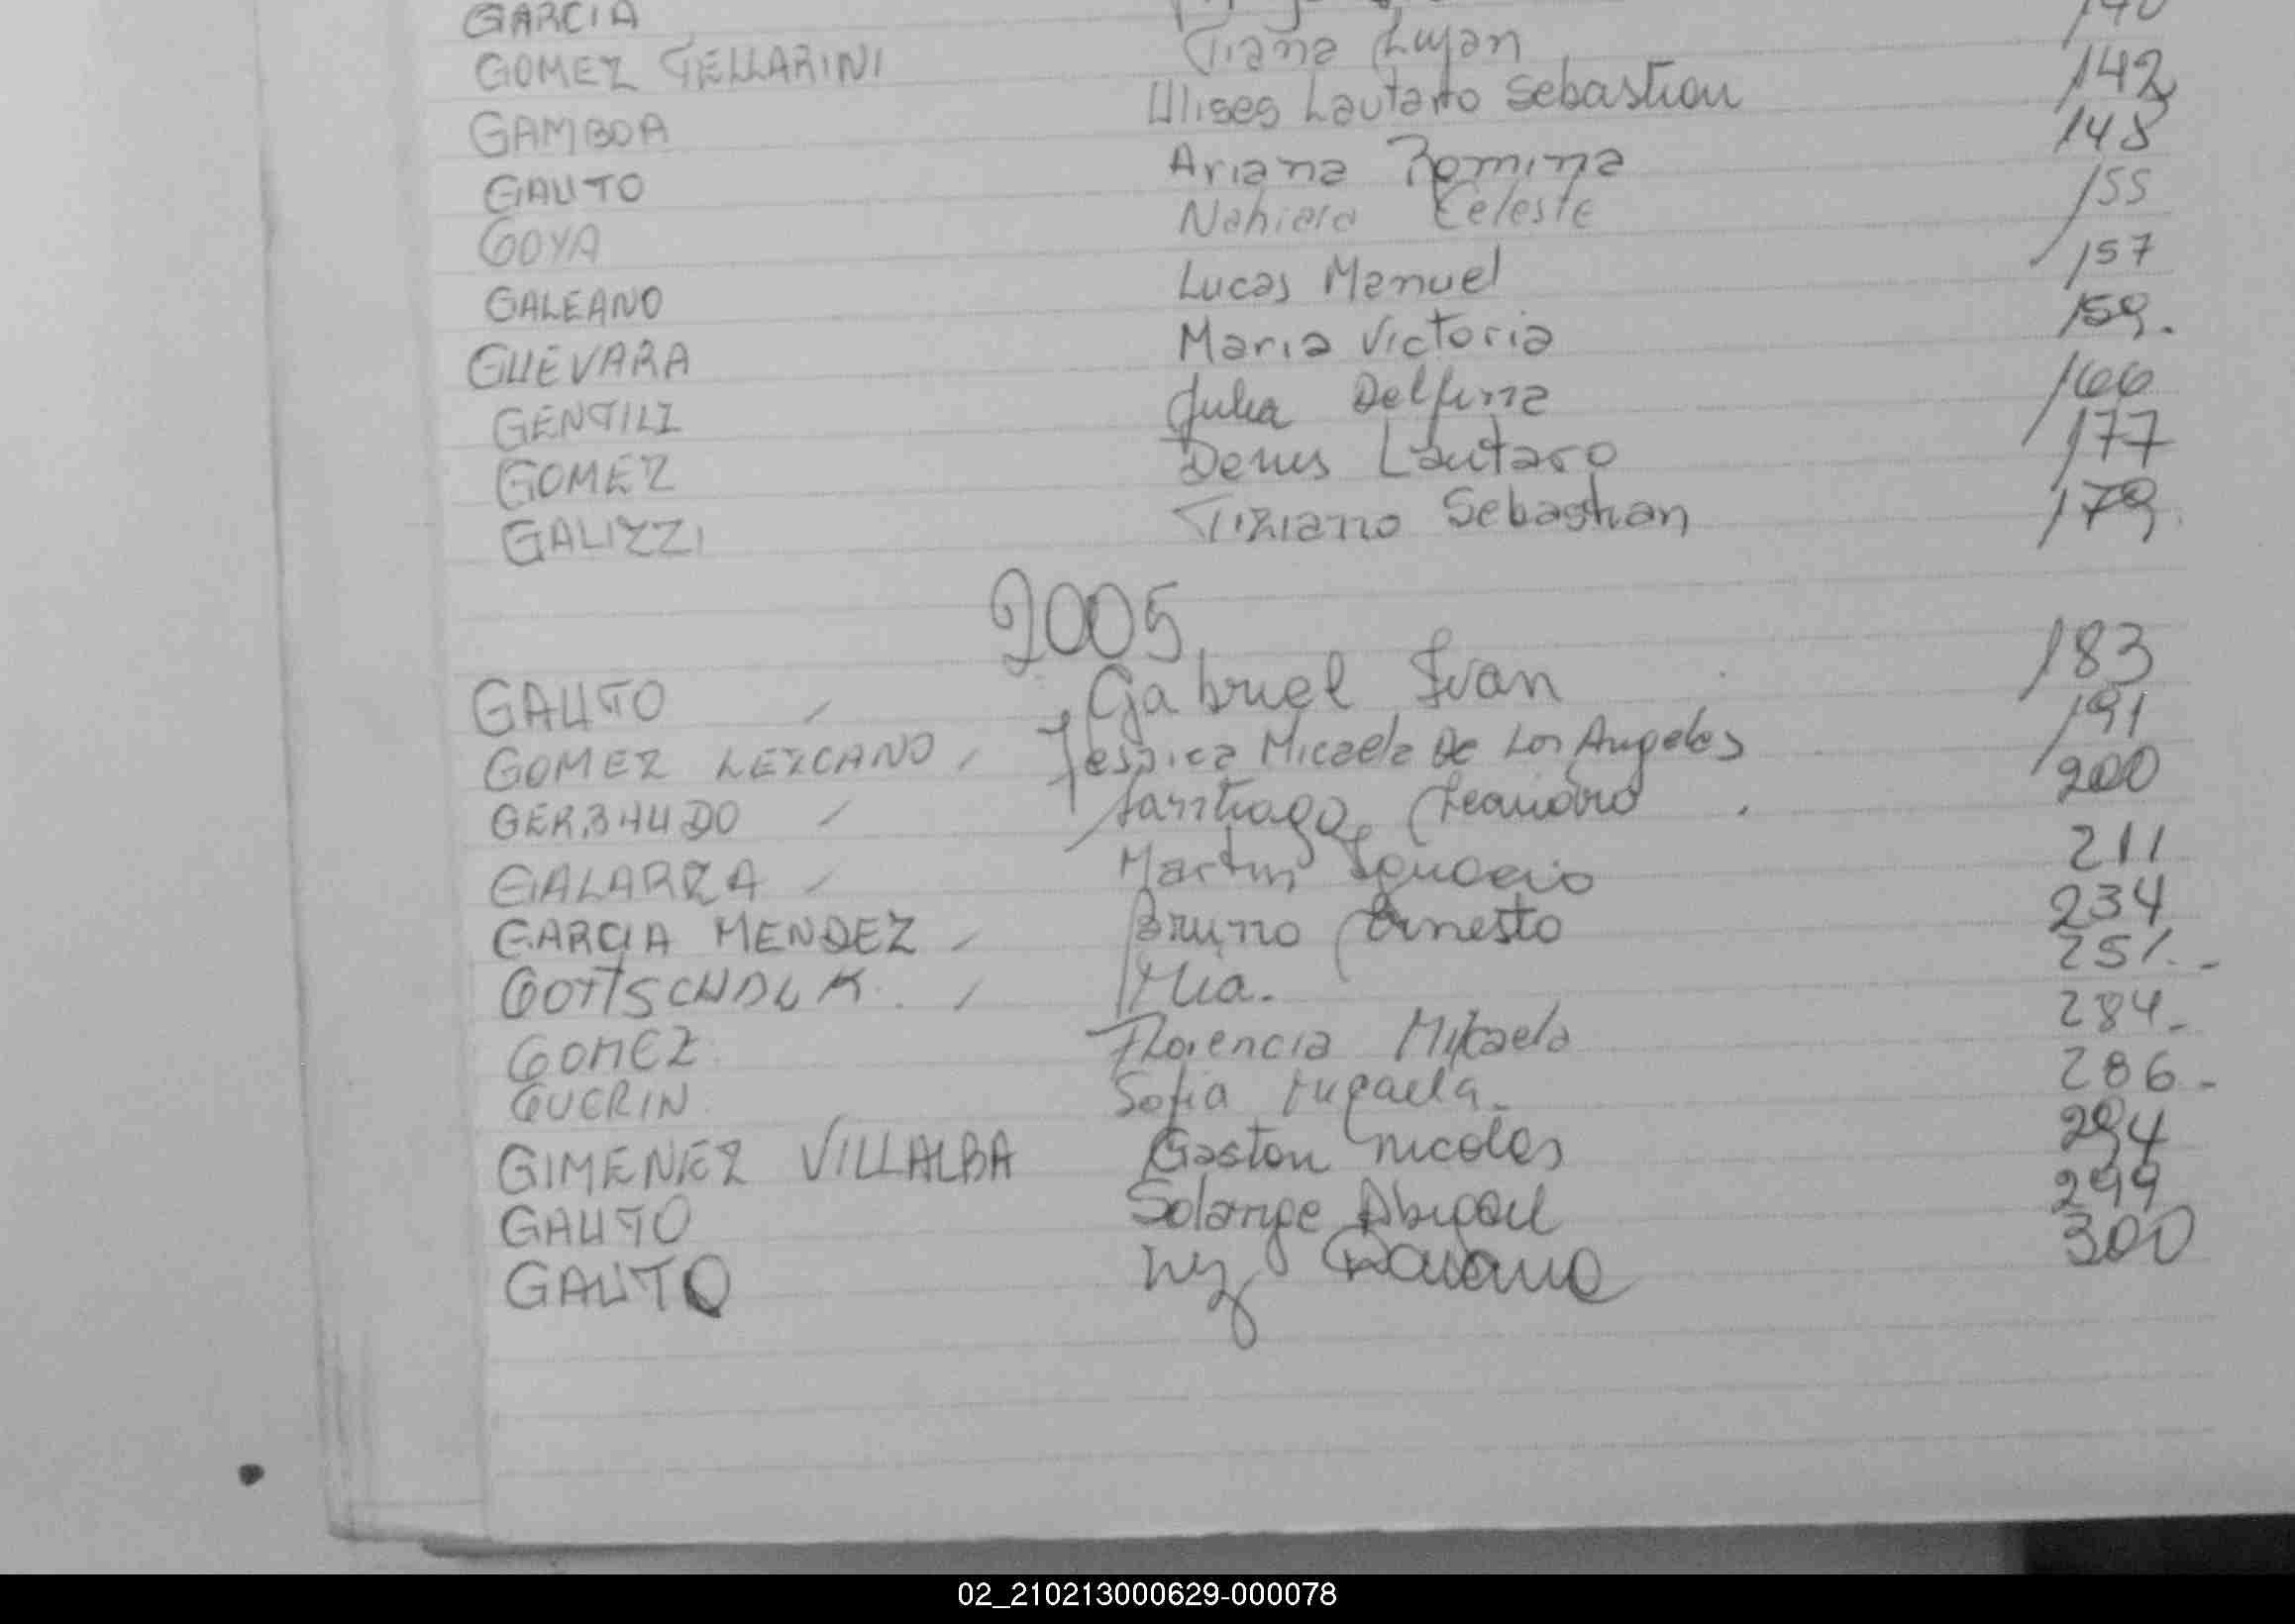 GARCIA 140
GOMEZ TELLARINI Tiana Lujan 142
GAMBOA Ulises Lautaro Sebastian 148
GAUTO Ariana Romina 155
GOYA Nahiara Celeste 157
GALEANO Lucas Manuel 159.
GUEVARA Maria Victoria 166
GENTILI Julia Delfina 177
GOMEZ Denis Lautaro 179
GALIZZI Tiziano Sebastian
2005
GAUTO Gabriel Ivan 183
GOMEZ LEZCANO Jessica Micaela De Los Angeles 191
GERBAUDO Santiago Leandro 200
GALARZA Martin Ignacio 211
GARCIA MENDEZ Bruno Ernesto 234
GOTTSCHALK Mia. 251.-
GOMEZ Florencia Micaela 284-
GUERIN Sofia Micaela- 286-
GIMENEZ VILLALBA Gaston Nicolas 294
GAUTO Solange Abigail 299
GAUTO 300
02_210213000629-000078